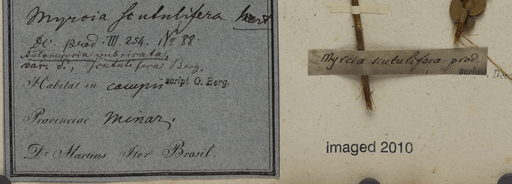 Myrcia scutulifera Mart
Dc. prod. III. 254. No 88.
Aulomyrcia imbricata,
var. δ, scutulifera Berg.
Habitat in campis
script. O. Berg.
Provinciae Minar,
Dr Martius Iter Brasil.
Myrcia scutulifera, prod.
scrib.
imaged 2010